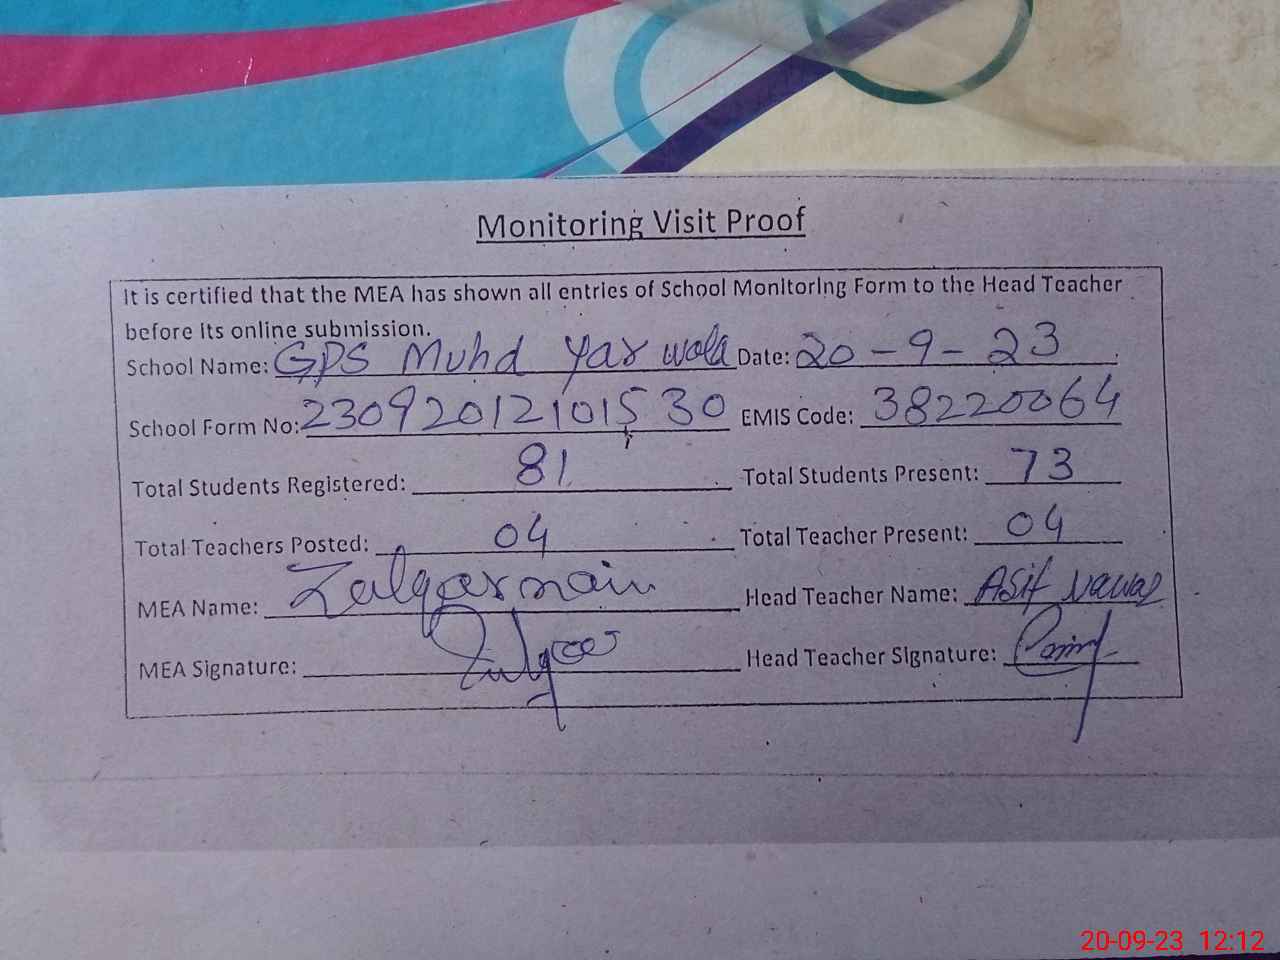 Monitoring Visit Proof
It is certified that the MEA has shown all entries of School Monitoring Form to the Head Teacher
before its online submission.
School Name: GPS Muhd Yar wala Date: 20-9-23
School Form No: 23092012101530 EMIS Code: 38220064
Total Students Registered: 81 Total Students Present: 73
Total Teachers Posted: 04 Total Teacher Present: 04
MEA Name: Zulqarnain Head Teacher Name: Asif Nawaz
MEA Signature: Head Teacher Signature:
20-09-23 12:12